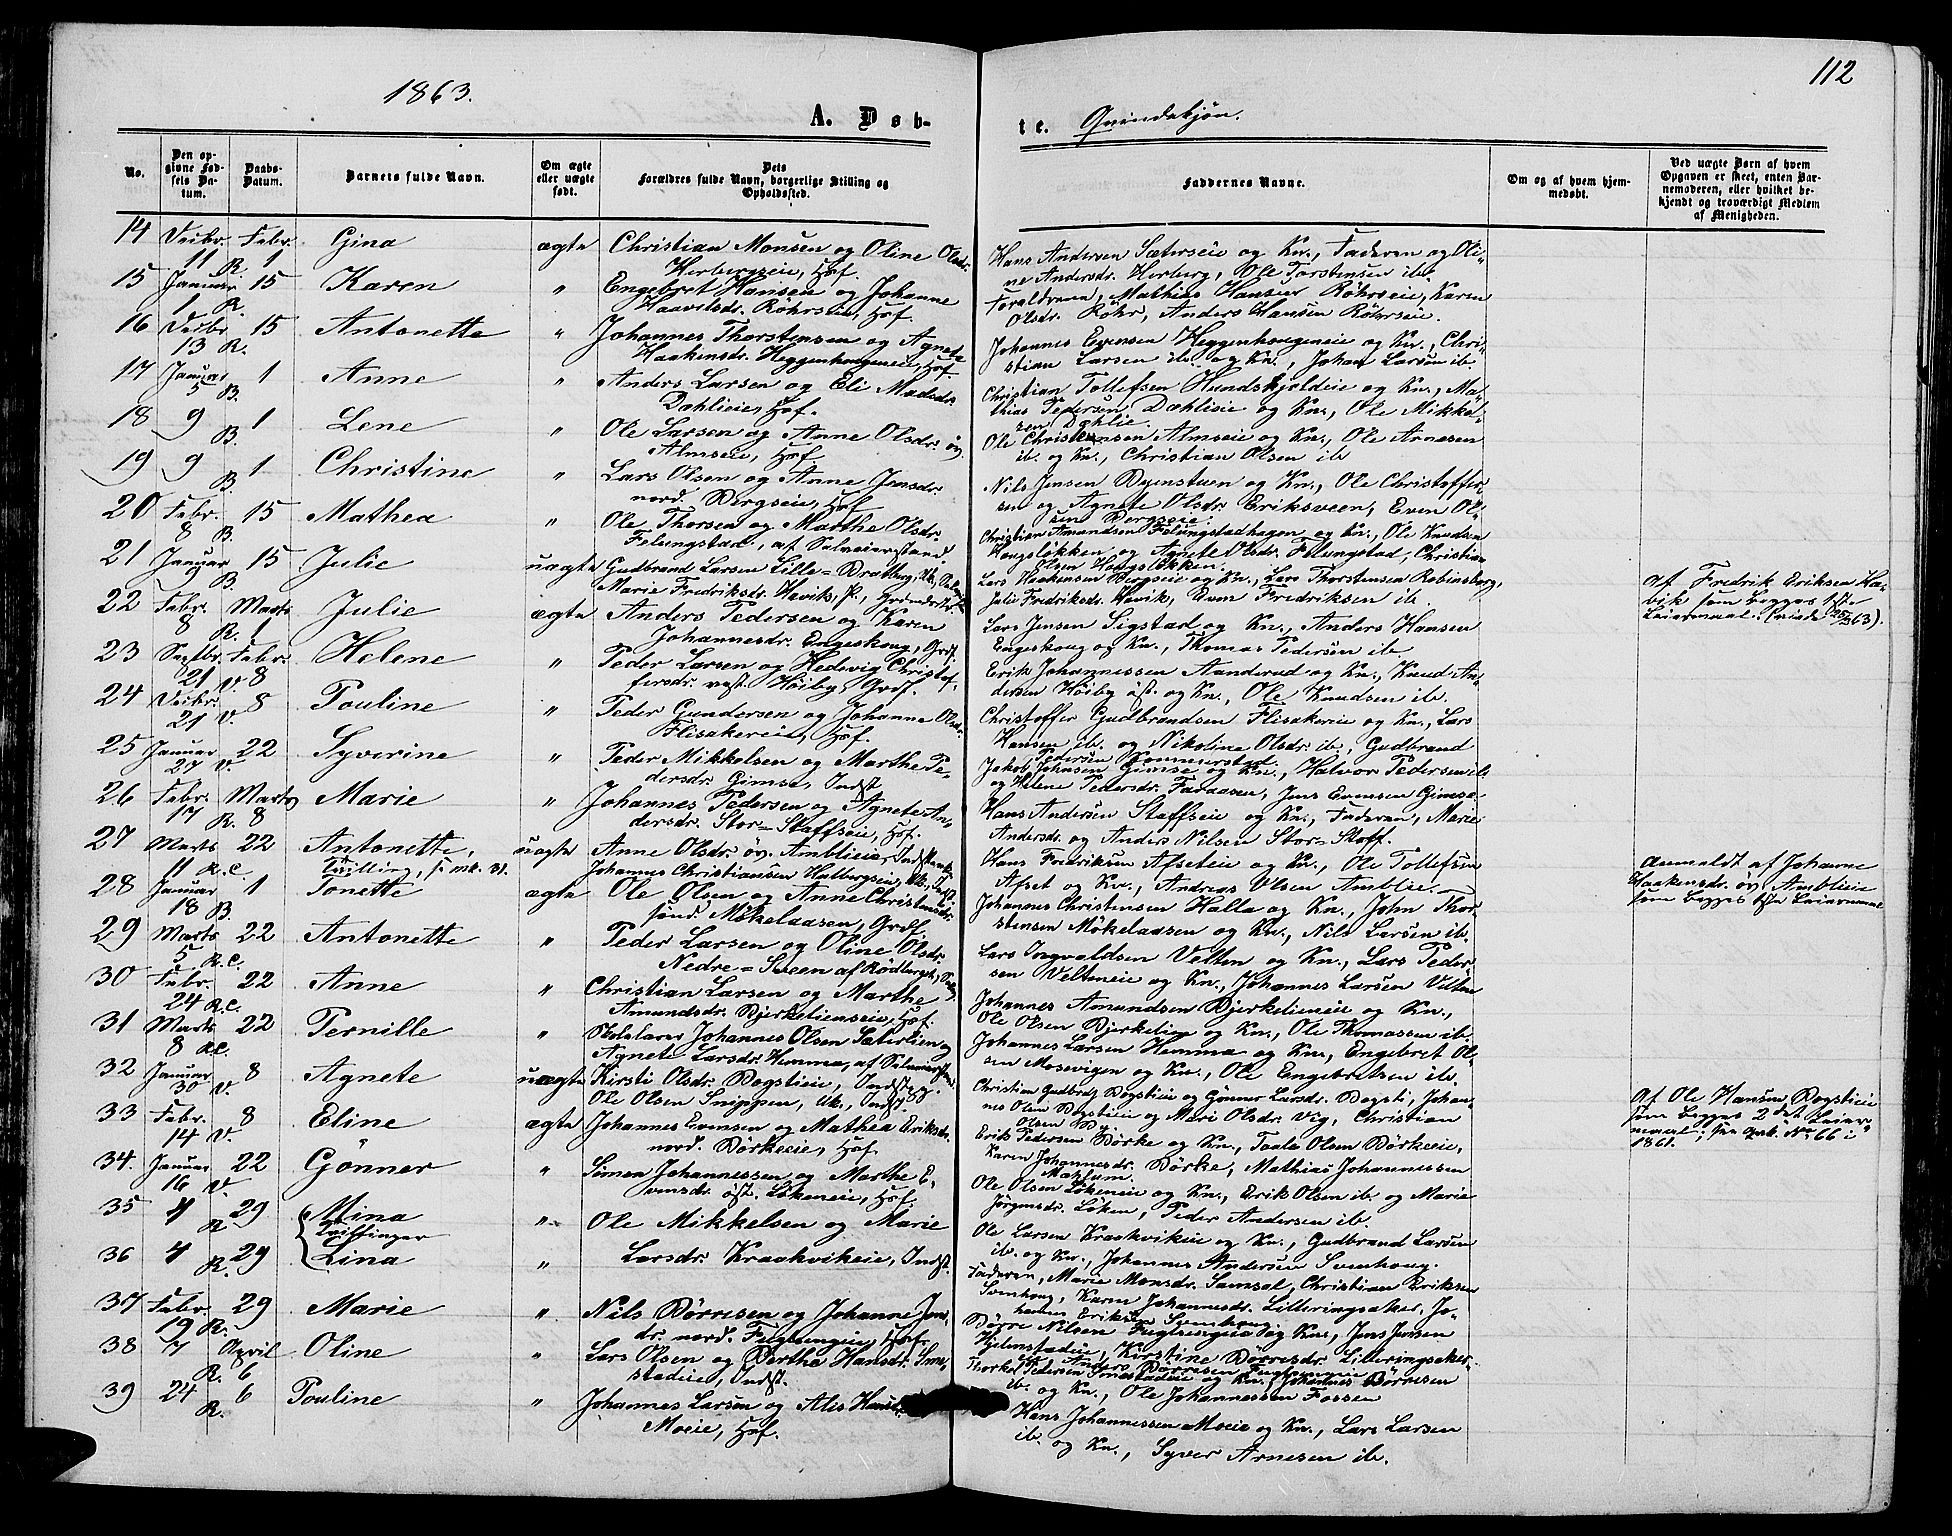 1863.
112
A. Døb-
te. Qvindekjøn.
No.
Den op-
givne Fød-
sels Da-
tum.
Daabs-
Datum.
Barnets fulde Navn.
Om ægte
eller uægte
født.
Dets
Forældres fulde Navn, borgerlige Stilling og
Opholdssted.
Faddernes Navne.
Om og af hvem hjem-
medøbt.
Ved uægte Børn af hvem
Opgaven er skeet, enten Bar-
nemoderen, eller hvilket be-
kjendt og troværdigt Medlem
af Menigheden.
14 Decbr. Febr. Gina ægte Christian Monsen og Oline Olsdr.
11 R. 1 Herbergseie, Hof.
Hans Andersen Sæterseie og Kn., Faderen og Oli-
ne Andersdr. Herberg, Ole Torstensen ib.
15 Januar 15 Karen " Engebret Hansen og Johanne
1 R. Haavelsdr. Röhrseie, Hof.
Forældrene, Mathias Hansen Röhrseie, Karen
Olsdr. Röhr, Anders Hansen Röhrseie.
16 Decbr. 15 Antonette " Johannes Thorstensen og Agnete
13 R. Haakensdr. Heggenhougeneie, Hof.
Johannes Evensen Heggenhougeneie og Kn., Chris-
tian Larsen ib. og Kn., Johan Larsen ib.
17 Januar 1 Anne " Anders Larsen og Eli Madsdr.
5 B. Dæhlieie, Hof.
Christian Tollefsen Hundskjoldeie og Kn., Ma-
thias Pedersen Dæhlieie og Kn., Ole Mikkel-
sen Dæhlie.
18 9 1 Lene " Ole Larsen og Anne Olsdr. öv.
B. Almseie, Hof
Ole Christensen Almseie og Kn., Ole Arnesen
ib. og Kn., Christian Olsen ib
19 9 1 Christine " Lars Olsen og Anne Jensdr.
B. nord. Bergseie, Hof
Nils Jensen Byenstuen og Kn., Ole Christoffer-
sen og Agnete Olsdr. Eriksveen, Even Ol-
sen Bergseie.
20 Febr. 15 Mathea " Ole Thorsen og Marthe Olsdr.
8 B. Felungstad, af Selveierstand
Christian Amundsen Felungstadhagen og Kn., Ole Knudsen
Hougslökken og Agnete Olsdr. Felungstad, Christian
Olsen Hougslökken.
21 Januar 15 Julie uægte Gudbrand Larsen Lille-Bratberg, Uk.,
9 B. Marie Fredriksdr. Hovik, P.,
Lars Haakensen Bergseie og Kn., Lars Thorstensen Robinsberg,
Julie Fredriksdr. Hovik, Even Fredriksen ib
af Fredrik Eriksen Ho-
vik som begges 1ste
Leiermaal.
22 Febr. Marts Julie ægte Anders Pedersen og Karen
8 R. 1 Johannesdr. Engeskoug, Grdf.
Lars Jensen Sigstad og Kn., Anders Hansen
Engeskoug og Kn., Thomas Pedersen ib.
23 Septbr. Febr. Helene " Peder Larsen og Hedevig Christof-
21 V. 8 fersdr. vest. Höiby, Grdf.
Erik Johannessen Aanderud og Kn., Knud An-
dersen Höiby öst. og Kn., Ole Knudsen ib.
24 Decbr. 8 Pouline " Peder Gundersen og Johanne Olsdr.
21 V. Flisakereie, Hof.
Christoffer Gudbrandsen Flisakereie og Kn., Lars
Hansen ib. og Nikoline Olsdr. ib., Gudbrand
Pedersen Sommerstad.
25 Januar 22 Syverine " Peder Mikkelsen og Marthe Pe-
27 V. dersdr. Gimse, Indst
Jakob Johnsen Gimse og Kn., Halvor Pedersen ib.
og Helene Pedersdr. Faraasen, Jens Evensen Gimse.
26 Febr. Marts Marie " Johannes Pedersen og Agnete An-
17 R. 8 dersdr. Stor-Staffseie, Hof.
Hans Andersen Staffseie og Kn., Faderen, Marie
Andersdr. og Anders Nilsen Stor-Staff.
27 Marts 22 Antonette, uægte Anne Olsdr. öv. Amblieie, Indst
11 R.C. Tvilling, s. mk. 31. Johannes Christiansen Hatbergseie, Uk., Indst.
Hans Fredriksen Afseteie og Kn., Ole Tollefsen
Afset og Kn., Andreas Olsen Amblie.
Anmeldt af Johanne
Haakensdr. öv. Amblieie
som begges 1ste Leiermaal
28 Januar 1 Tonette ægte Ole Olsen og Anne Christensdr.
18 B. sönd. Mökelaasen, Grdf.
Johannes Christensen Halla og Kn., John Thor-
stensen Mökelaasen og Kn., Nils Larsen ib.
29 Marts 22 Antonette " Peder Larsen og Oline Olsdr.
5 R.C. Nedre-Sveen af Rödberget,
Lars Ingvaldsen Velten og Kn., Lars Peder-
sen Velteneie og Kn., Johannes Larsen Velten
30 Febr. 22 Anne " Christian Larsen og Marthe
24 R.C. Amundsdr. Bjerkelieneie, Hof.
Johannes Amundsen Bjerkelieneie og Kn.,
Ole Olsen Bjerkelien og Kn., Ole Thomassen ib.
31 Marts 22 Pernille " Skolelærer Johannes Olsen Sæterlien og
8 R.C. Agnete Larsdr. Hemma, af Selveierstand
Johannes Larsen Hemma og Kn., Engebret Ol-
sen Mosevigen og Kn., Ole Engebretsen ib.
32 Januar 8 Agnete uægte Kirsti Olsdr. Bogstieie, Indst. og
30 V. Ole Olsen Snippen, Uk., Indst.
Christian Gudbrdsn Bogstieie og Gönner Larsdr. Bogsti, Johan-
nes Olsen Bogstieie og Mari Olsdr. Vig, Christian
Olsen By.
af Ole Hansen Bogstieie
som begges 2det Leier-
maal; see qvk. No 66 i
1861.
33 Febr. 8 Eline ægte Johannes Evensen og Mathea Eriksdr.
14 V. nord. Börkeeie, Hof.
Erik Pedersen Börke og Kn., Paale Olsen Börkeeie,
Karen Johannesdr. Börke, Mathias Johannessen
34. Januar 22 Gönner " Simen Johannessen og Marthe E-
16 V. vensdr. öst. Lökeneie, Hof
Ole Olsen Lökeneie og Kn., Erik Olsen ib. og Marie
Jörgensdr. Löken, Peder Andersen ib.
35 4 29 Mina " Ole Mikkelsen og Marie
R Tvillinger
Ole Larsen Kraakvikeie og Kn., Gudbrand Larsen
ib. og Kn., Johannes Andersen Svenhoug.
36 4 29 Lina " Larsdr. Kraakvikeie, Indst.
R.
Faderen, Marie Monsdr. Samsal, Christian Eriksen
Svenhoug, Karen Johannesdr. Litteringsaker, Jo-
hannes Eriksen Svenhoug.
37 Febr. 29 Marie " Nils Börresen og Johanne Jens-
19 R. dr. nord. Fuglsengeie, Hof.
Börre Nilsen Fuglsengeie og Kn., Jens Jensen
Hjelmstadeie, Kirstine Börresdr. Litteringsaker
Anders Börresen Fuglsengeie
38 7 April Oline " Lars Olsen og Berthe Hansdr. Sme-
R. 6 stadeie, Indst.
Thorkel Pedersen Smestadeie og Kn., Johannes Börresen
ib. og Kn., Ole Johannessen Fossen
39 24 6 Pouline " Johannes Larsen og Alis Hansdr.
R. Moeie, Hof.
Hans Johannessen Moeie og Kn., Lars Larsen
ib. og Kn., Syver Arnesen ib.